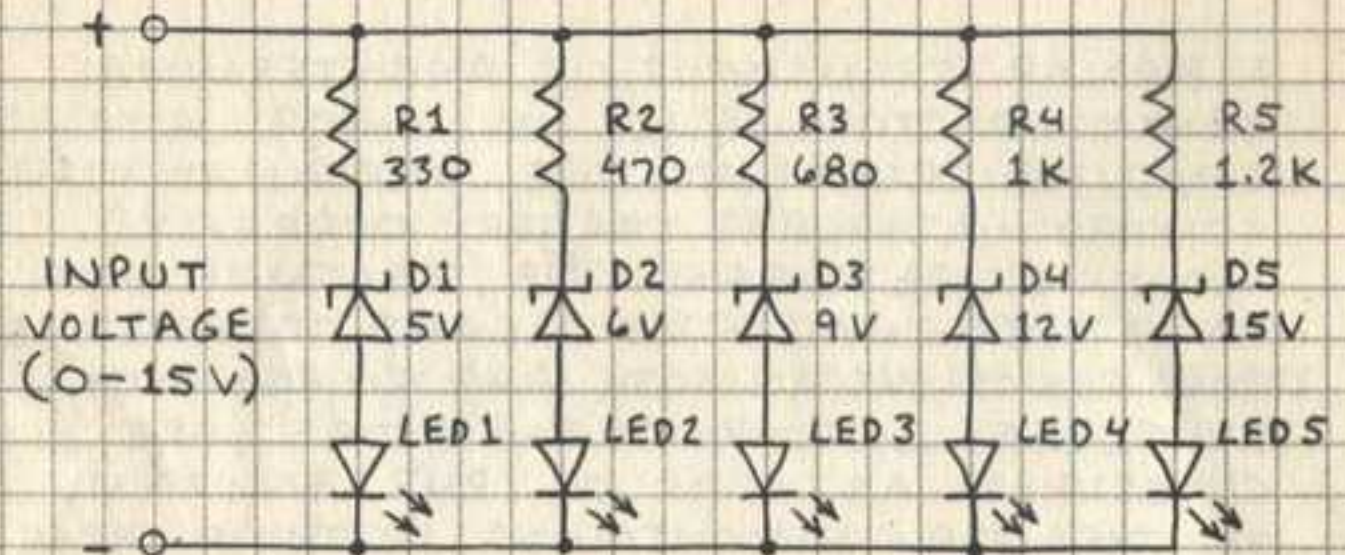 +
R1
330
R2
470
R3
680
R4
1K
R5
1.2K
INPUT
VOLTAGE
(0-15V)
D1
5V
D2
6V
D3
9V
D4
12V
D5
15V
LED1
LED2
LED3
LED4
LED5
-